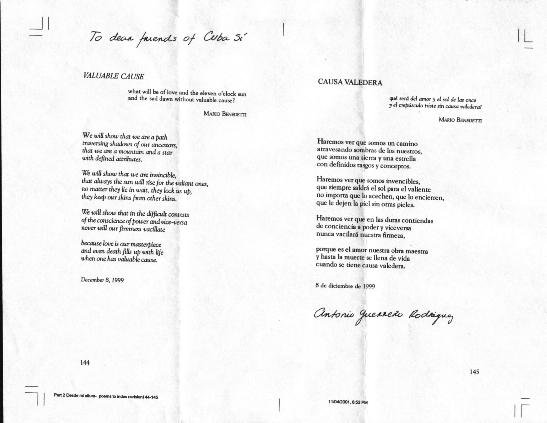 To dear friends of Cuba Sí
VALUABLE CAUSE
what will be of love and the eleven o'clock sun
and the sad dawn without valuable cause?
MARIO BENEDETTI
We will show that we are a path
traversing shadows of our ancestors,
that we are a mountain and a star
with defined attributes.
We will show that we are invincible,
that always the sun will rise for the valiant ones,
no matter they lie in wait, they lock us up,
they keep our skins from other skins.
We will show that in the difficult contests
of the conscience of power and vice-versa
never will our firmness vacillate
because love is our masterpiece
and even death fills up with life
when one has valuable cause.
December 8, 1999
144
Part 2 Desde mi altura- poems to index revision1 44-145
CAUSA VALEDERA
qué será del amor y el sol de las once
y el crepúsculo triste sin causa valedera?
MARIO BENEDETTI
Haremos ver que somos un camino
atravesando sombras de los nuestros,
que somos una sierra y una estrella
con definidos rasgos y conceptos.
Haremos ver que somos invencibles,
que siempre saldrá el sol para el valiente
no importa que lo acechen, que lo encierren,
que le dejen la piel sin otras pieles.
Haremos ver que en las duras contiendas
de conciencia a poder y viceversa
nunca vacilará nuestra firmeza,
porque es el amor nuestra obra maestra
y hasta la muerte se llena de vida
cuando se tiene causa valedera.
8 de diciembre de 1999
Antonio Guerrero Rodríguez
145
11/04/2001, 6:53 PM